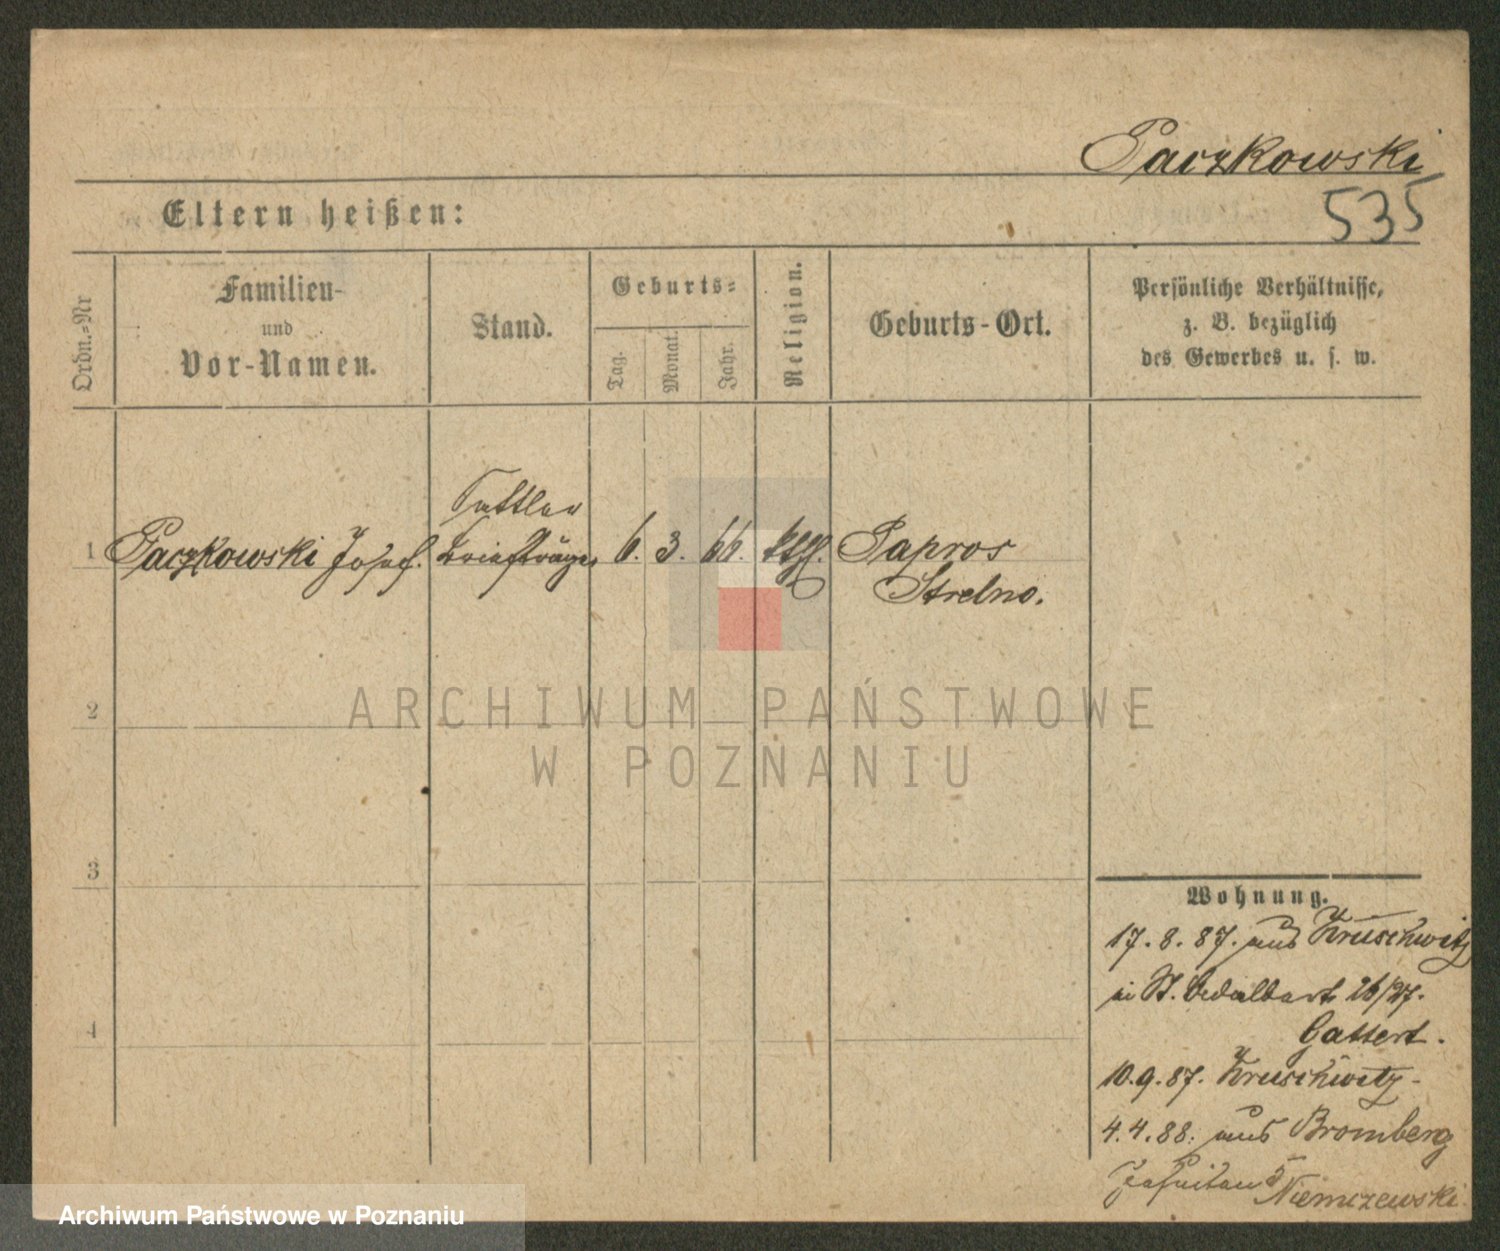 Paczkowski
535
Eltern heißen:
Ordn.=Nr
Familien-
und
Vor-Namen.
Stand.
Geburts=
Tag.
Monat.
Jahr.
Religion.
Geburts-Ort.
Persönliche Verhältnisse,
z. B. bezüglich
des Gewerbes u. s. w.
Sattler
1 Paczkowski Josef. Briefträger 6. 3. 66. ktfl. Papros
Strelno.
2
3
4
Wohnung.
17. 8. 87. aus Kruschwitz
in St. Adalbert 26/27.
Gattert.
10. 9. 87. Kruschwitz
4. 4. 88. aus Bromberg
Jesuiten 5
Niemczewski
ARCHIWUM PAŃSTWOWE
W POZNANIU
Archiwum Państwowe w Poznaniu